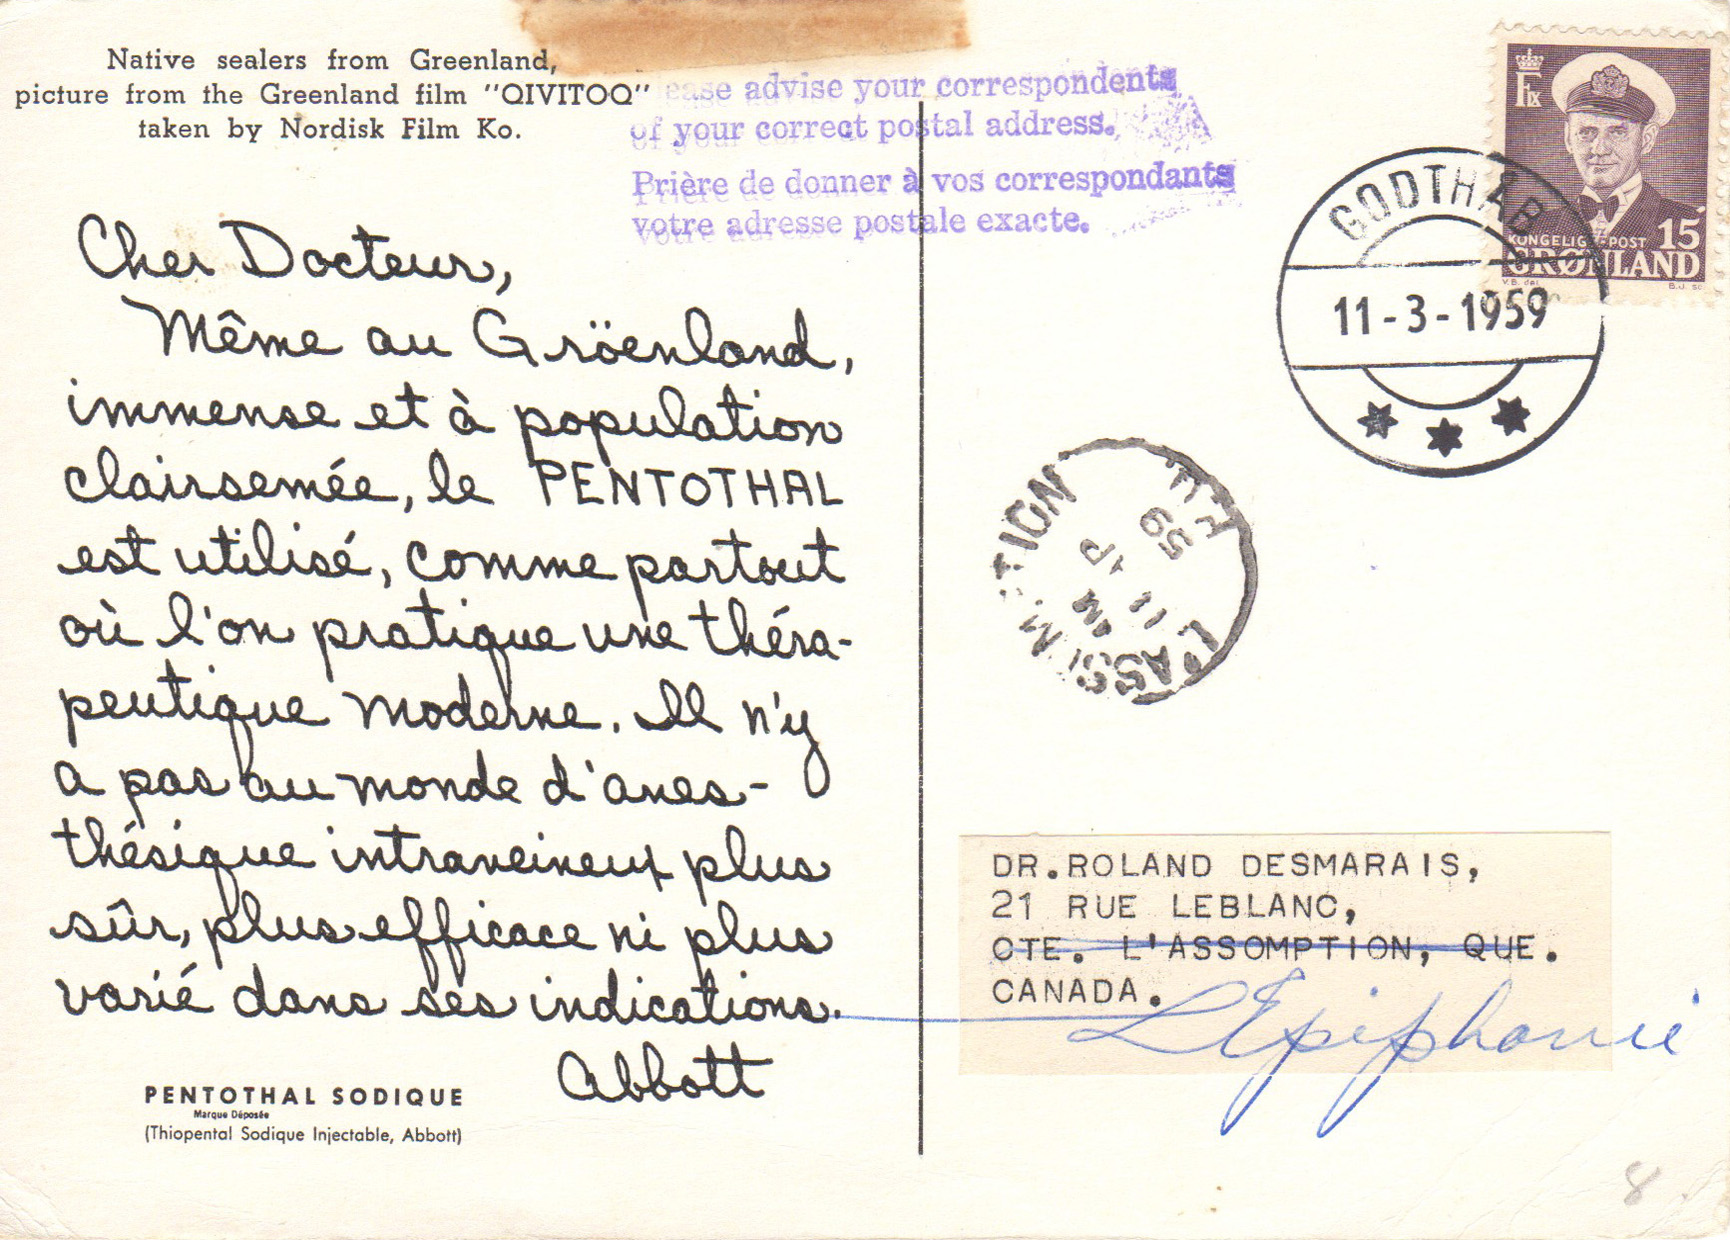 Native sealers from Greenland,
picture from the Greenland film "QIVITOQ"
taken by Nordisk Film Ko.
ease advise your correspondents
of your correct postal address.
Prière de donner à vos correspondants
votre adresse postale exacte.
KONGELIG POST 15
GRØNLAND
V.B. del
B.J. sc
GODTHÅB
11-3-1959
Cher Docteur,
Même au Gröenland,
immense et à population
clairsemée, le PENTOTHAL
est utilisé, comme partout
où l'on pratique une théra-
peutique moderne. Il n'y
a pas au monde d'anes-
thésique intraveineux plus
sûr, plus efficace ni plus
varié dans ses indications.
Abbott
PENTOTHAL SODIQUE
Marque Déposée
(Thiopental Sodique Injectable, Abbott)
L'ASSOMPTION
AM
11 AP
59
DR.ROLAND DESMARAIS,
21 RUE LEBLANC,
CTE. L'ASSOMPTION, QUE.
CANADA.
L'Epiphanie
8